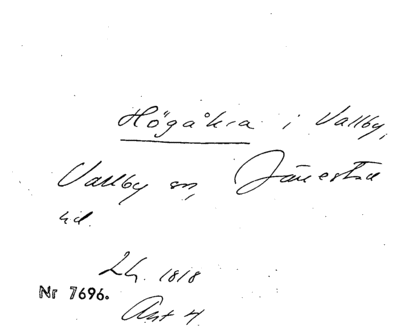 Högåkra i Vallby,
Vallby sn, Järrestad
hd.
Lh. 1818
Nr 7696.
Akt 4